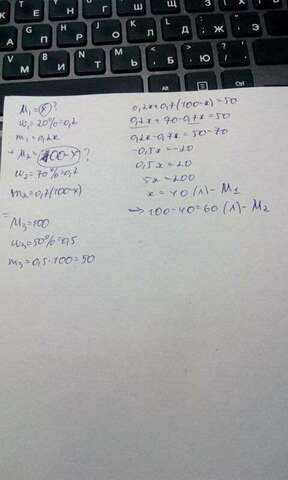 Г
А
П
Р
О
Л
Д
Ж
Э
И
Т
Ь
Б
Ю
M₁=x?
ω₁=20%=0,2
m₁=0,2x
+ M₂=100-x?
ω₂=70%=0,2
m₂=0,7(100-x)
=
M₃=100
ω₃=50%=0,5
m₃=0,5·100=50
0,2x+0,7(100-x)=50
0,2x+70-0,7x=50
0,2x-0,7x=50-70
-0,5x=-20
0,5x=20
5x=200
x=40 (л)- M₁
→ 100-40=60 (л)- M₂